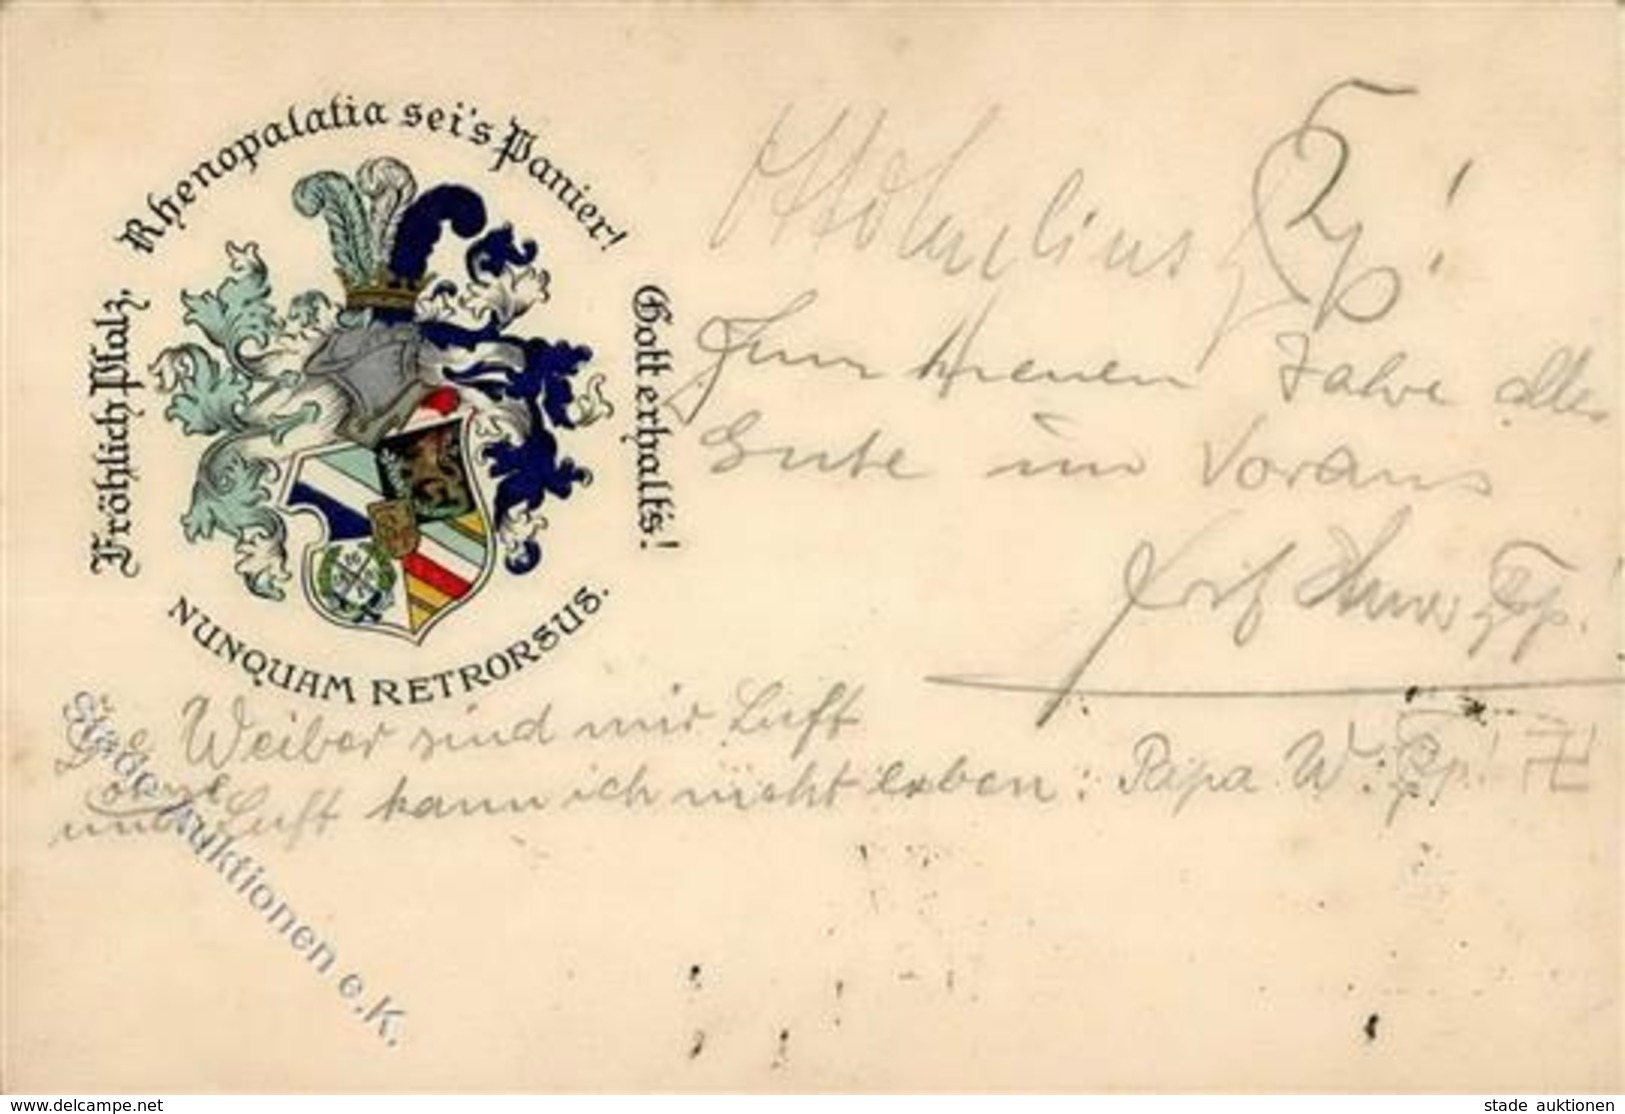 Fröhlich Pfalz,
Rhenopalatia sei's Panier!
Gott erhalt's!
NUNQUAM RETRORSUS.
Zum Neuen Jahre alles
Gute im Voraus
Weiber sind mir Luft
ohne Luft kann ich nicht leben. Papa W.
stade Auktionen e.K.
www.delcampe.net
stade auktionen